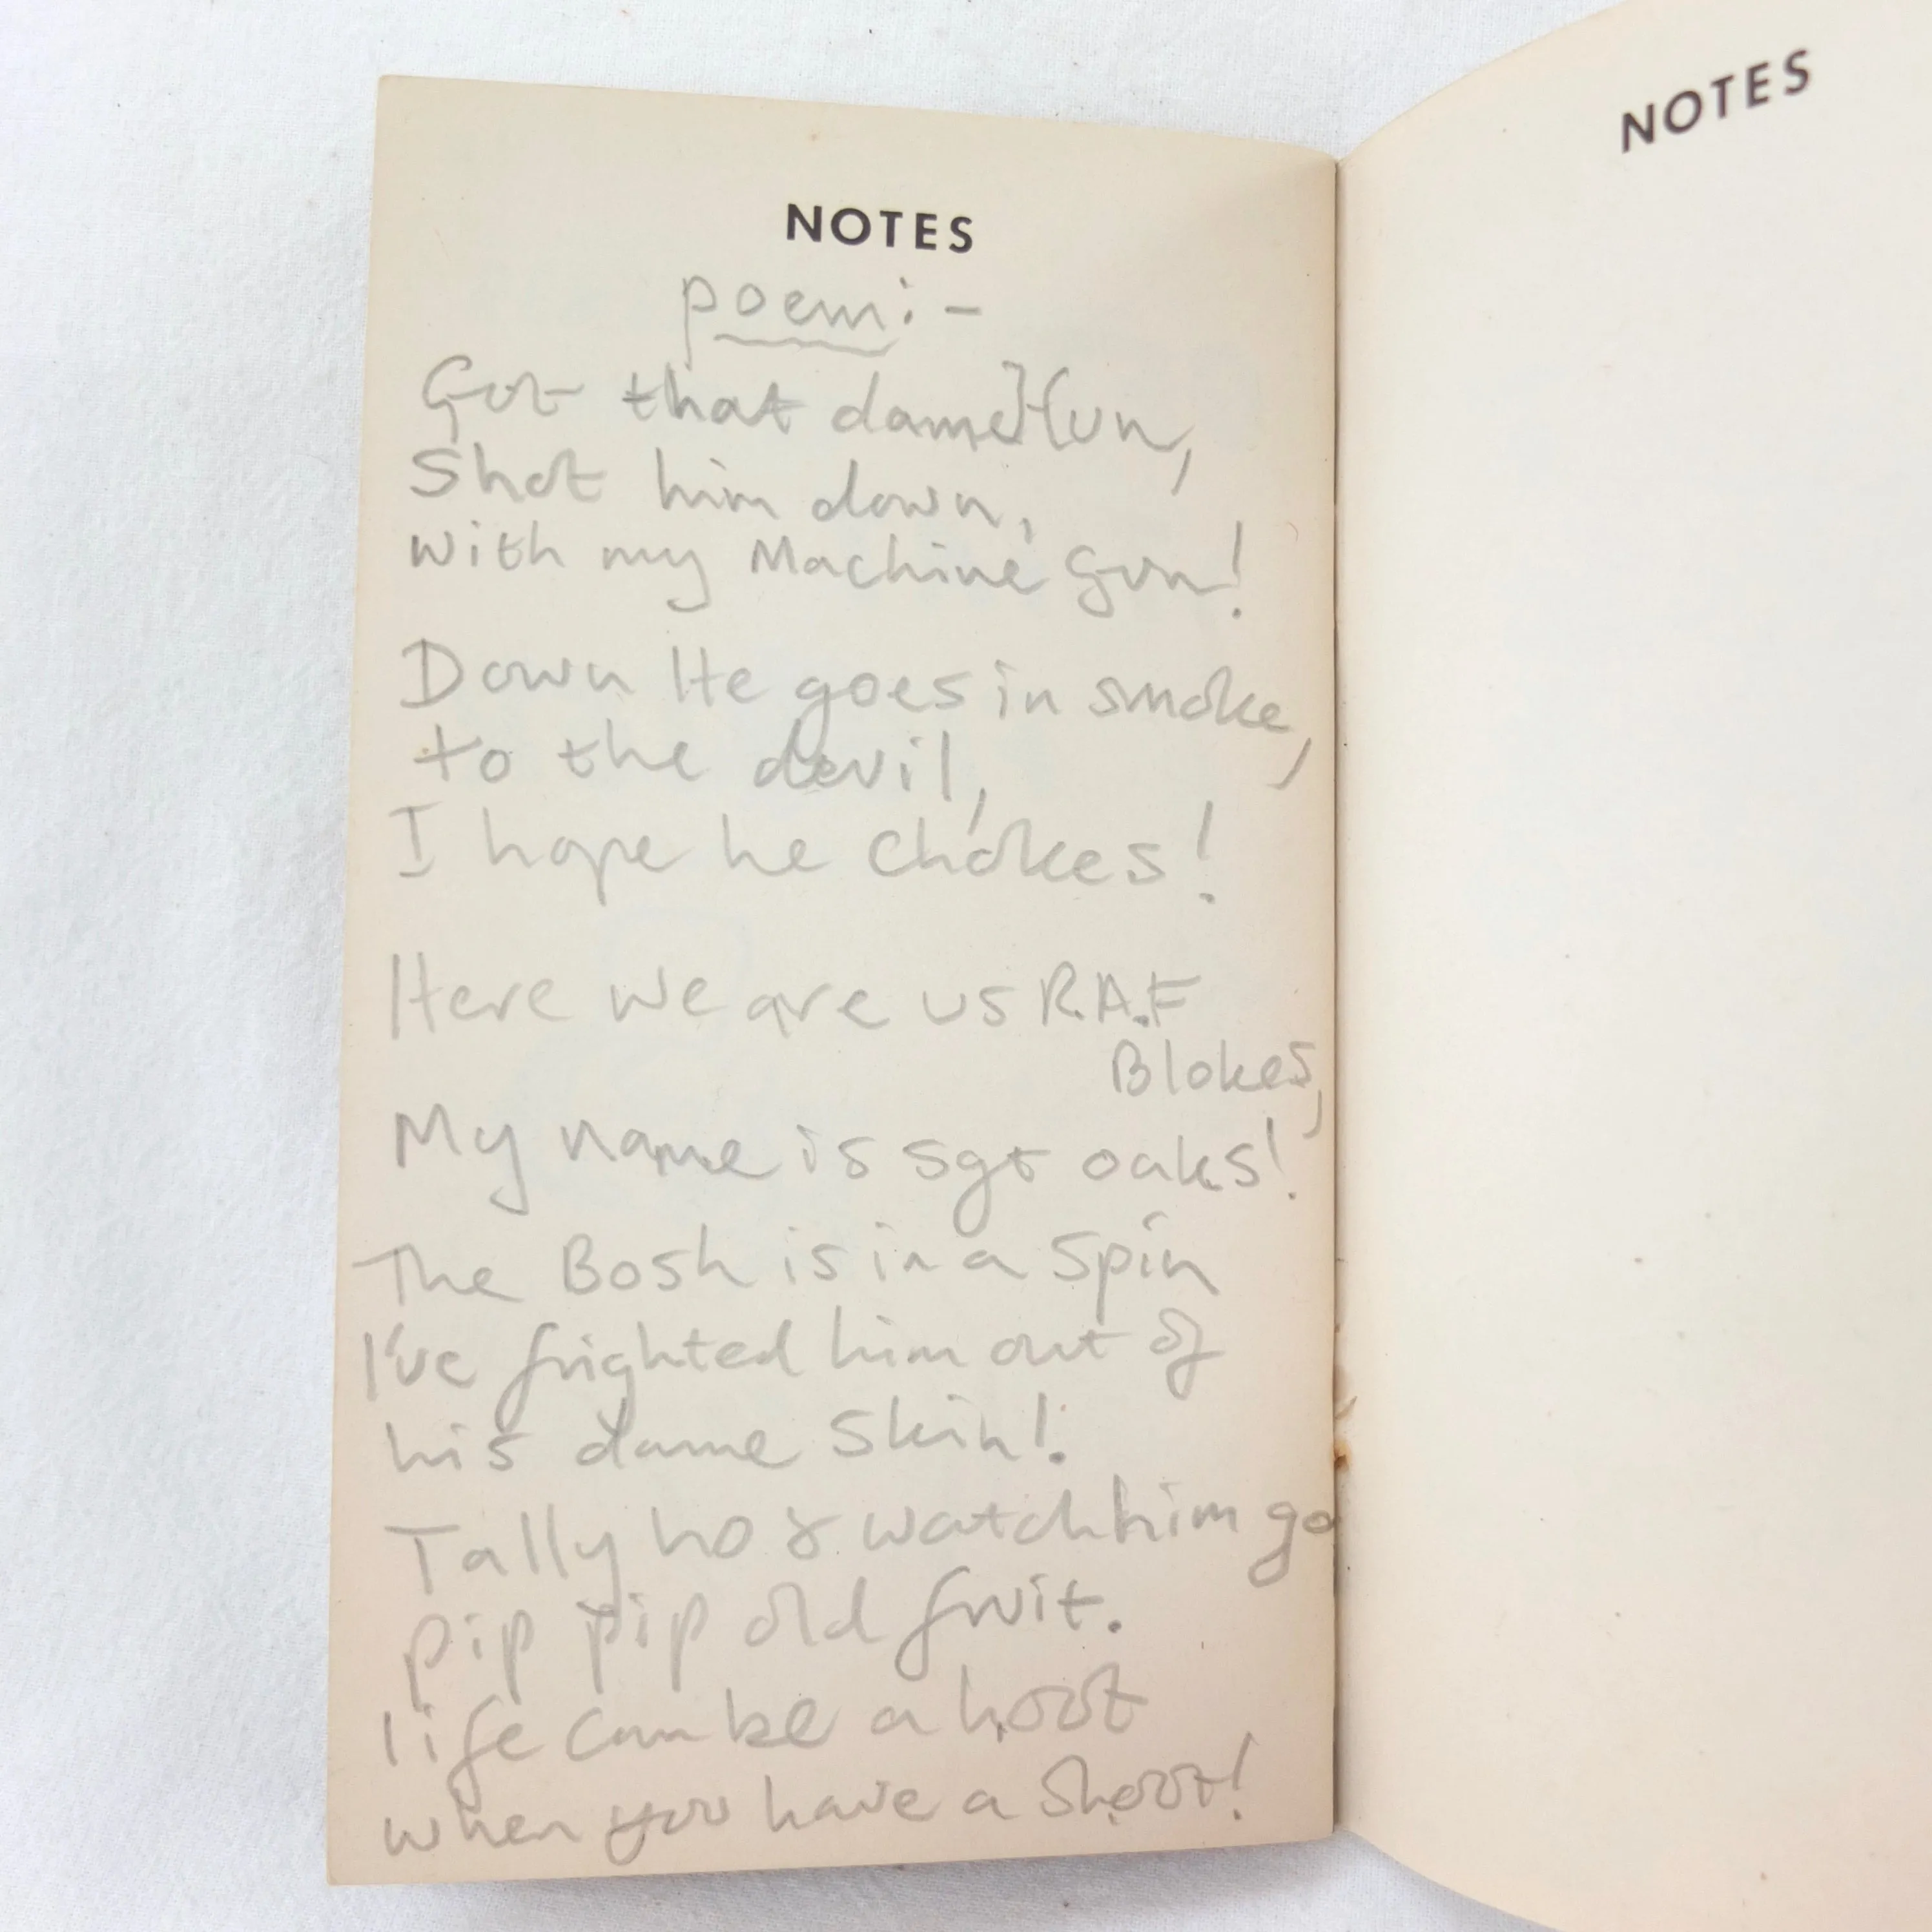 NOTES
poem:-
Got that dame Hun,
Shot him down,
with my Machine Gun!
Down He goes in smoke,
to the devil,
I hope he chokes!
Here we are us R.A.F
Blokes,
My name is sgt oaks!
The Bosh is in a spin
I've frighted him out of
his dame skin!
Tally ho & watch him go
pip pip old fruit.
life can be a hoot
when you have a shoot!
NOTES